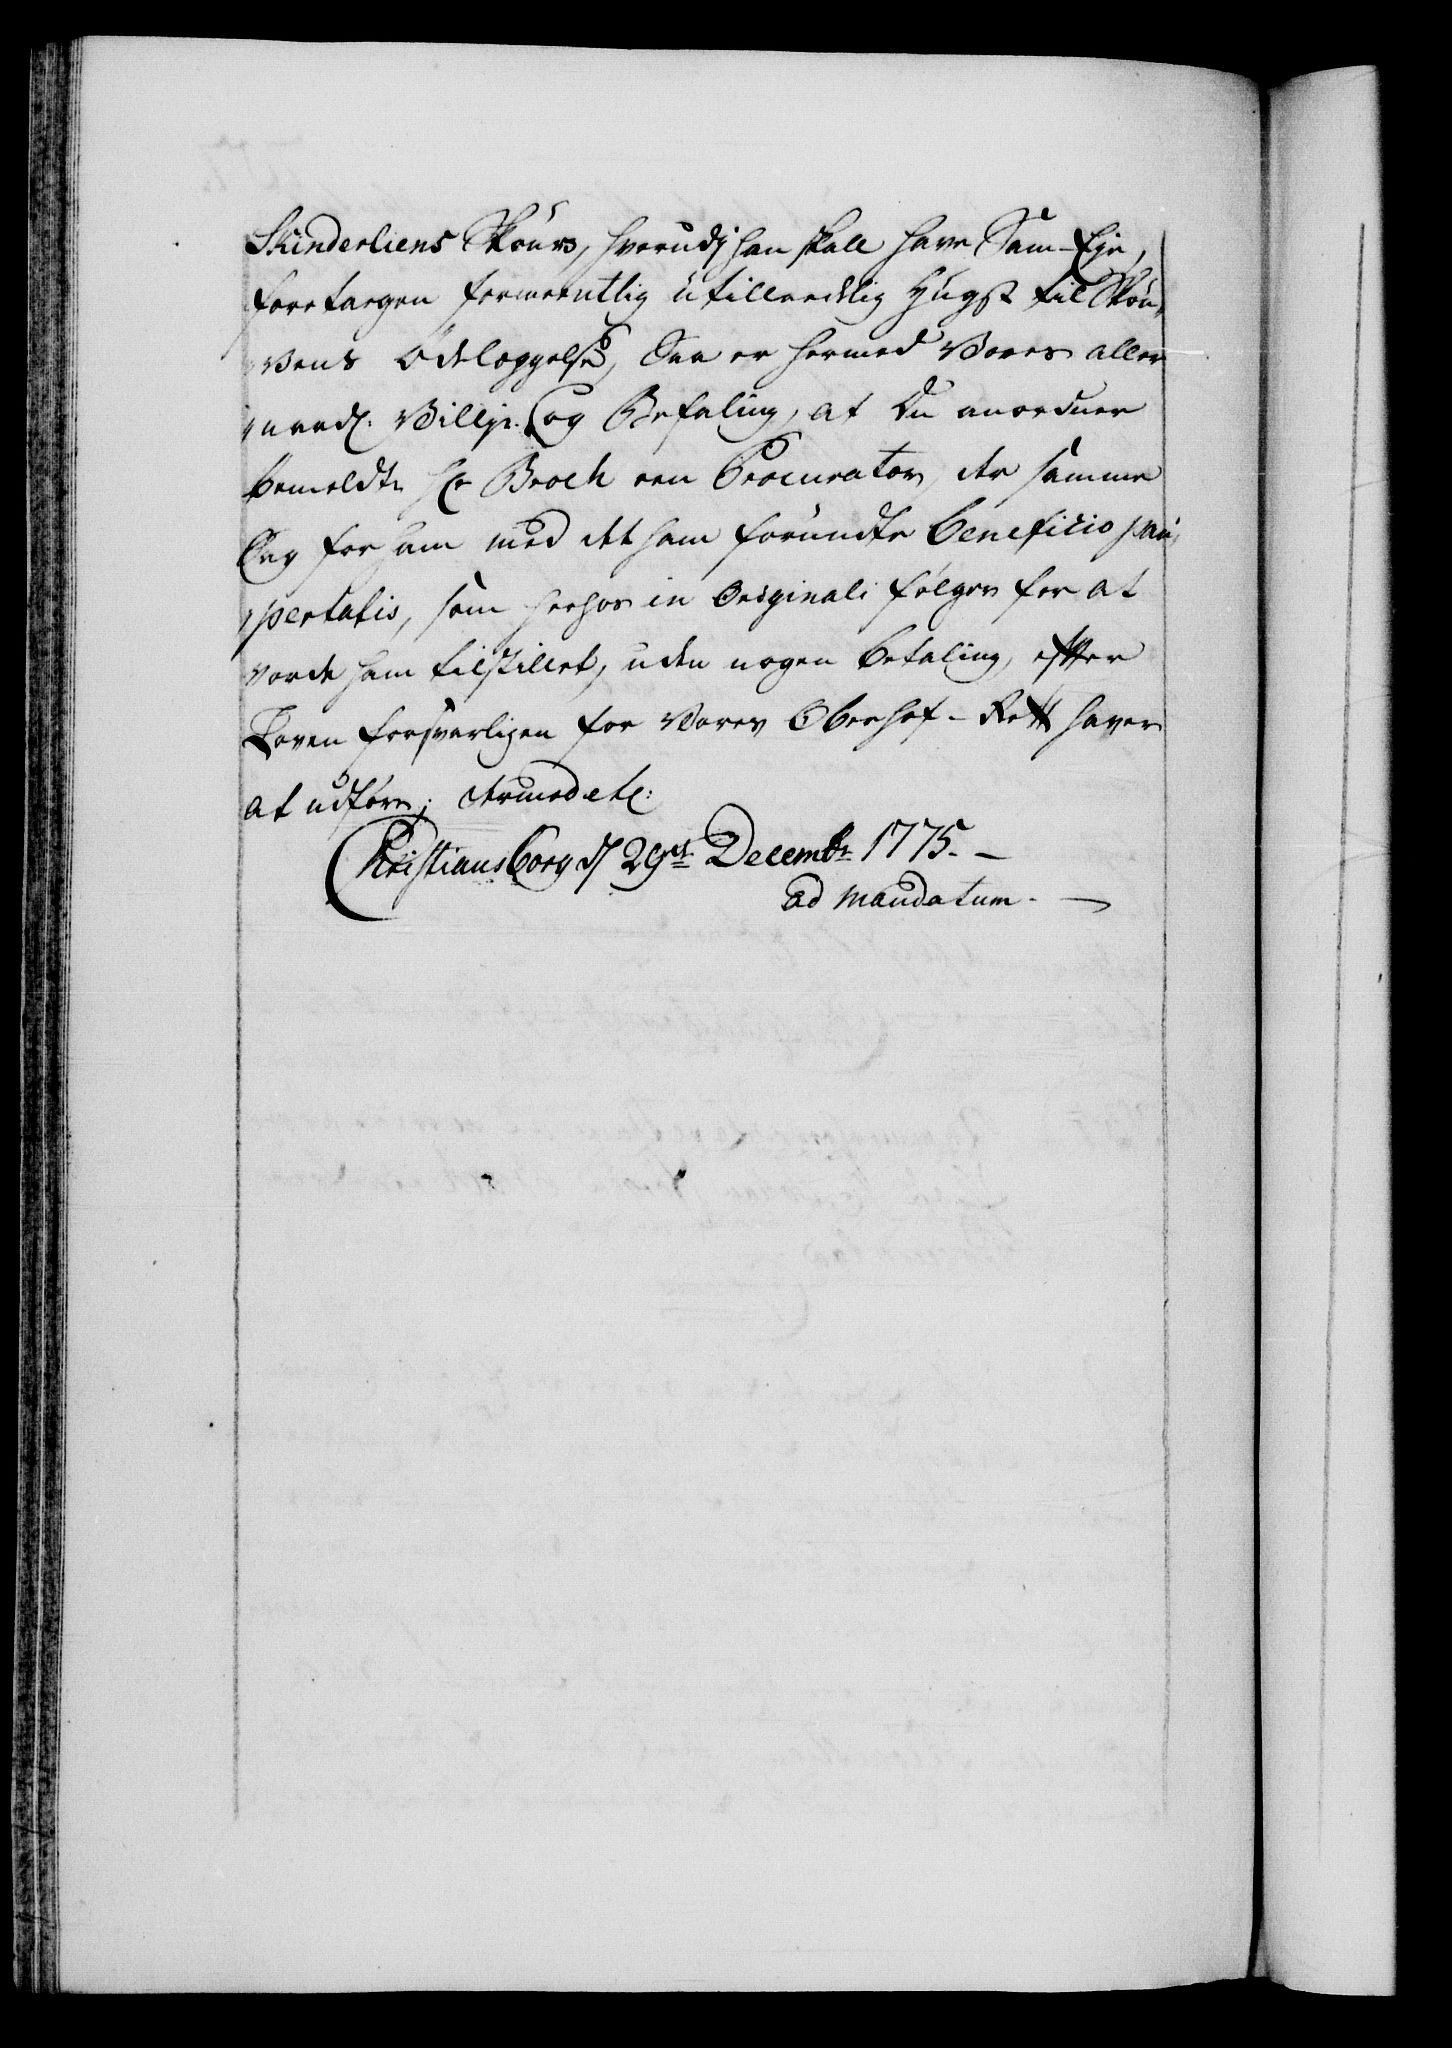 Skinderliens Skouv, hvorudj han skall have Sam-Eje,
foretagen formeentlig utilladelig Hugst til Skou,
vens Ödelæggelse, Saa er hermed Vores aller
naad. Villje og Befaling, at Du anordner
bemeldte Hr Broch een Procurator, der samme
Sag for ham med det ham forundte beneficio pau,
pertatis, som herhos in Originali følger for at
vorde ham tilstillet, uden nogen betaling, efter
Loven forsvarligen for Vores Oberhof-Rett haver
at udføre; dermed etc:
Christiansborg d 29de Decembr 1775.
ad mandatum.